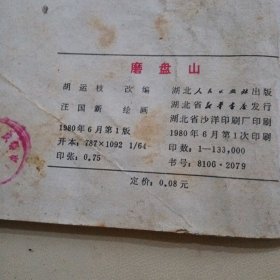 磨盘山
胡运枝 改编
汪国新 绘画
1980年6月第1版
开本：787×1092 1/64
印张：0.75
湖北人民出版社出版
湖北省新华书店发行
湖北省沙洋印刷厂印刷
1980年6月第1次印刷
印数：1—133,000
书号：8106·2079
定价：0.08元